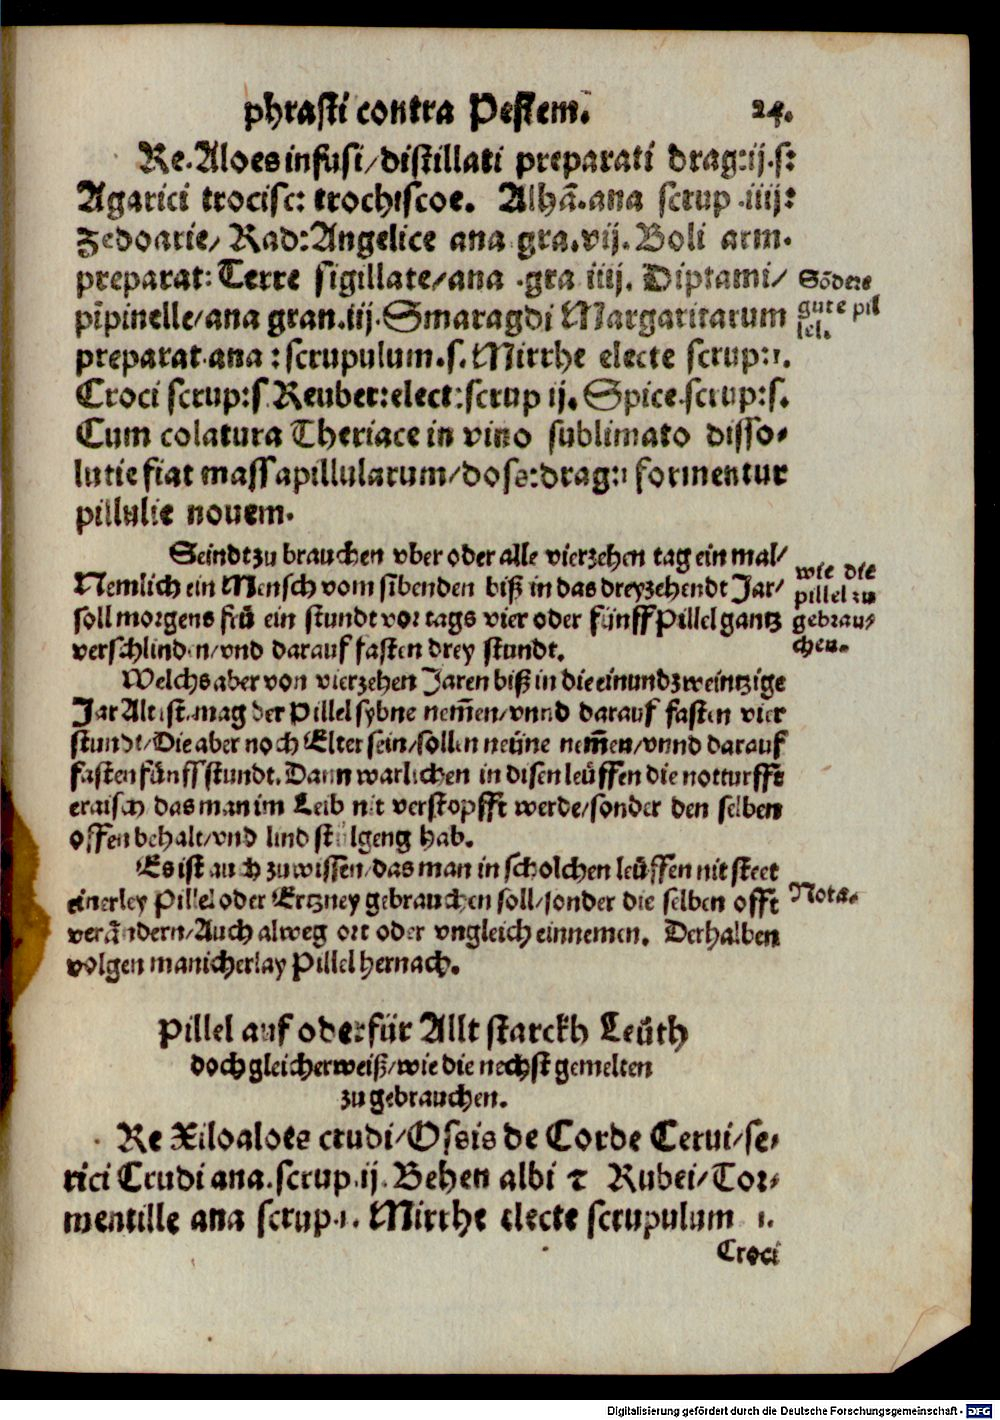 phrasti contra Pestem. 24.
Re. Aloes infusi/distillati preparati drag:ij.s:
Agarici trocisc: trochiscoe. Alhã.ana scrup .iiij:
Zedoarie/ Rad:Angelice ana gra.vij. Boli arm.
preparat: Terre sigillate/ana .gra iiij. Diptami/
pĩpinelle/ana gran.iij. Smaragdi Margaritarum
preparat.ana : scrupulum.s. Mirrhe electe scrup:1.
Croci scrup:s Reuber:elect:scrup ij. Spice.scrup:s.
Cum colatura Theriace in vino sublimato disso-
lutie fiat massapillularum/dose:drag:1 formentur
pillulie nouem.
Sõdere
gute pil
lel.
Seindt zu brauchen vber oder alle vierzehen tag ein mal/
Nemlich ein Mensch vom sibenden biß in das dreyzehendt Jar/
soll morgens frü ein stundt vor tags vier oder fünff Pillel gantz
verschlinden/vnd darauf fasten drey stundt.
wie die
pillel zu
gebrau/
chen.
Welchs aber von vierzehen Jaren biß in die einundzweintzige
Jar Alt ist.mag der Pillel sybne nem̃en/vnnd darauf fasten vier
stundt/Die aber noch Elter sein/sollen neüne nem̃en/vnnd darauf
fasten fünff stundt. Dann warlichen in disen leüffen die notturfft
eraisch das man im Leib nit verstopfft werde/sonder den selben
offen behalt/vnd lind stulgeng hab.
Es ist auch zu wissen/das man in scholchen leüffen nit steet
einerley Pillel oder Ertzney gebrauchen soll/sonder die selben offt
verändern/Auch alweg ort oder vngleich einnemen. Derhalben
volgen manicherlay Pillel hernach.
Nota.
Pillel auf oder für Allt starckh Leüth
doch gleicherweiß/wie die nechst gemelten
zu gebrauchen.
Re Xiloaloes crudi/Ossis de Corde Cerui/se-
rici Crudi ana.scrup.ij. Behen albi τ Rubei/Tor-
mentille ana scrup.1. Mirrhe electe scrupulum 1.
Croci
Digitalisierung gefördert durch die Deutsche Forschungsgemeinschaft - DFG